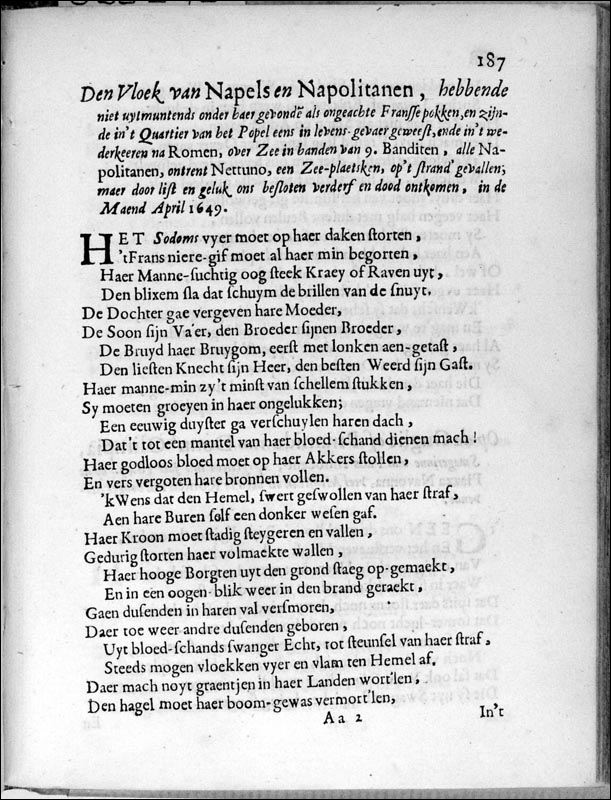 187
Den Vloek van Napels en Napolitanen, hebbende
niet uytmuntends onder haer gevondē als ongeachte Fransse pokken, en zijn-
de in't Quartier van het Popel eens in levens-gevaer geweest, ende in't we-
derkeeren na Romen, over Zee in handen van 9. Banditen, alle Na-
politanen, ontrent Nettuno, een Zee-plaetsken, op't strand gevallen;
maer door list en geluk ons besloten verderf en dood ontkomen, in de
Maend April 1649.
HET Sodoms vyer moet op haer daken storten,
'tFrans niere-gif moet al haer min begorten,
Haer Manne-suchtig oog steek Kraey of Raven uyt,
Den blixem sla dat schuym de brillen van de snuyt.
De Dochter gae vergeven hare Moeder,
De Soon sijn Va'er, den Broeder sijnen Broeder,
De Bruyd haer Bruygom, eerst met lonken aen-getast,
Den liefsten Knecht sijn Heer, den besten Weerd sijn Gast.
Haer manne-min zy't minst van schellem stukken,
Sy moeten groeyen in haer ongelukken;
Een eeuwig duyster ga verschuylen haren dach,
Dat't tot een mantel van haer bloed-schand dienen mach!
Haer godloos bloed moet op haer Akkers stollen,
En vers vergoten hare bronnen vollen.
'kWens dat den Hemel, swert geswollen van haer straf,
Aen hare Buren self een donker wesen gaf.
Haer Kroon moet stadig steygeren en vallen,
Gedurig storten haer volmaekte wallen,
Haer hooge Borgten uyt den grond staeg op-gemaekt,
En in een oogen-blik weer in den brand geraekt,
Gaen dusenden in haren val versmoren,
Daer toe weer andre dusenden geboren,
Uyt bloed-schands swanger Echt, tot steunsel van haer straf,
Steeds mogen vloekken vyer en vlam ten Hemel af.
Daer mach noyt graentjen in haer Landen wort'len,
Den hagel moet haer boom-gewas vermort'len,
Aa 2
In't